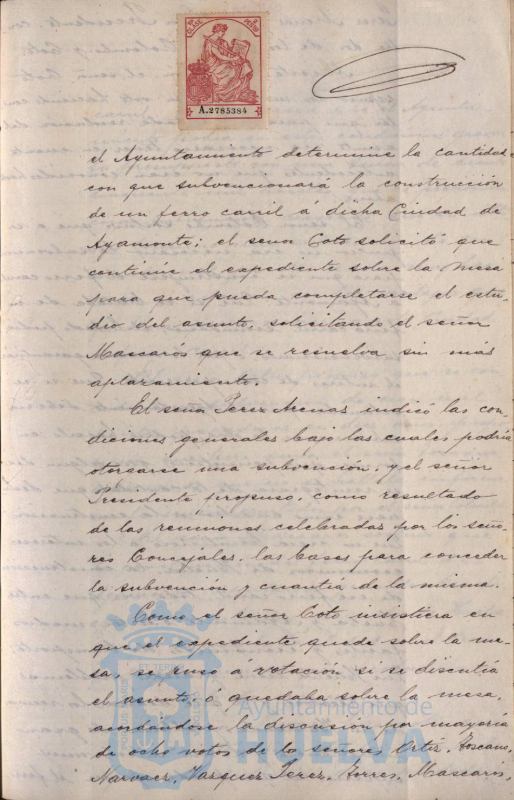 A.2785384
el Ayuntamiento determine la cantidad
con que subvencionará la construcción
de un ferro carril á dicha Ciudad de
Ayamonte; el señor Coto solicitó que
continúe el expediente sobre la mesa
para que pueda completarse el estu-
dio del asunto, solicitando el señor
Mascarós que se resuelva sin más
aplazamiento.
El señor Perez Arenas indicó las con-
diciones generales bajo las cuales podría
otorgarse una subvención, y el señor
Presidente propuso, como resultado
de las reuniones celebradas por los seño-
res Concejales, las bases para conceder
la subvención y cuantía de la misma.
Como el señor Coto insistiera en
que el expediente quede sobre la me-
sa, se puso á votación si se discutía
el asunto, ó quedaba sobre la mesa,
acordándose la discusión por mayoría
de ocho votos de los señores Ortiz, Toscano,
Narvaez, Vazquez Perez, Torres, Mascarós,
Ayuntamiento de
HUELVA